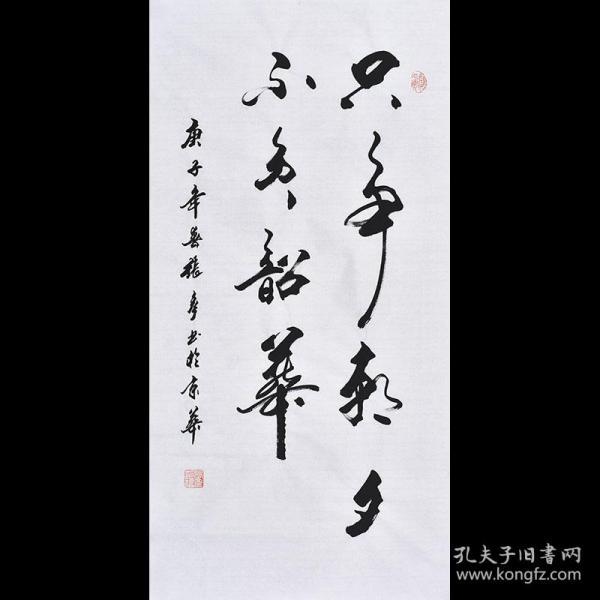 只争朝夕
不负韶華
庚子年春張彦书於京華
孔夫子旧書网
www.kongfz.com